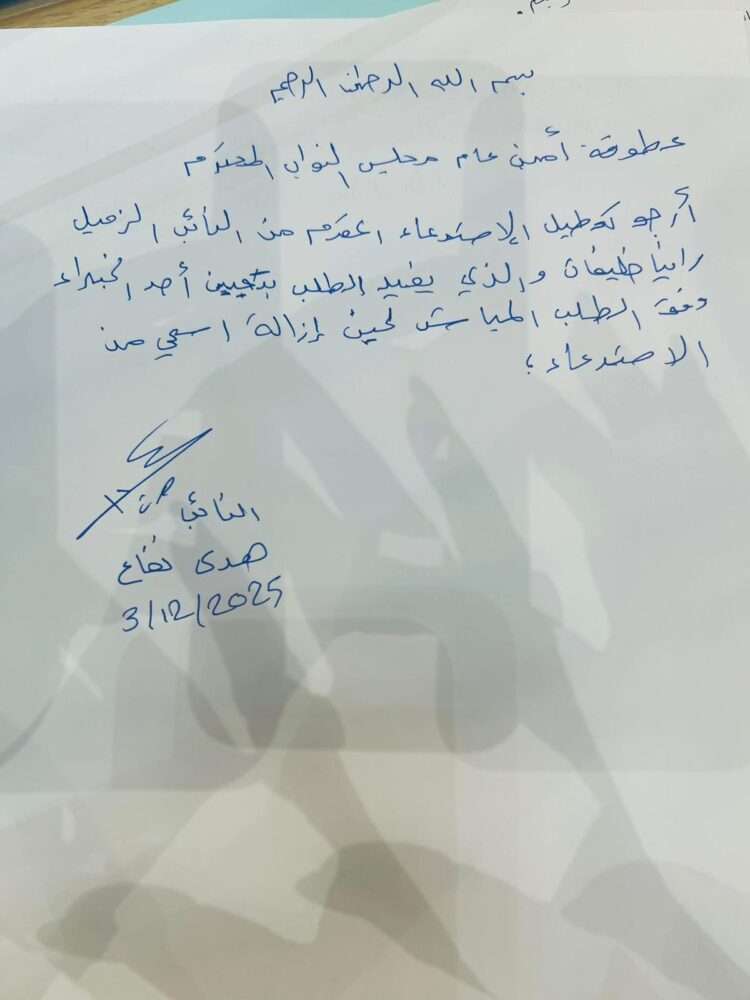 بسم الله الرحمن الرحيم
عطوفة أمين عام مجلس النواب المحترم
أرجو تعطيل الاستدعاء المقدم من النائب الزميل
رانيا خليفات والذي يفيد الطلب بتعيين أحد الخبراء
وفق الطلب المباشر لحين إزالة اسمي من
الاستدعاء ؛
النائب
هدى نفاع
3/12/2025